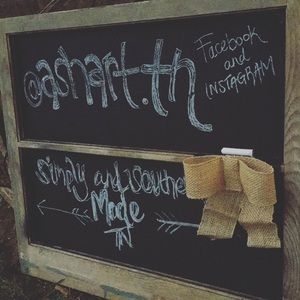 @ashart.tn
Facebook
and
INSTAGRAM
Simply and
Made
TN